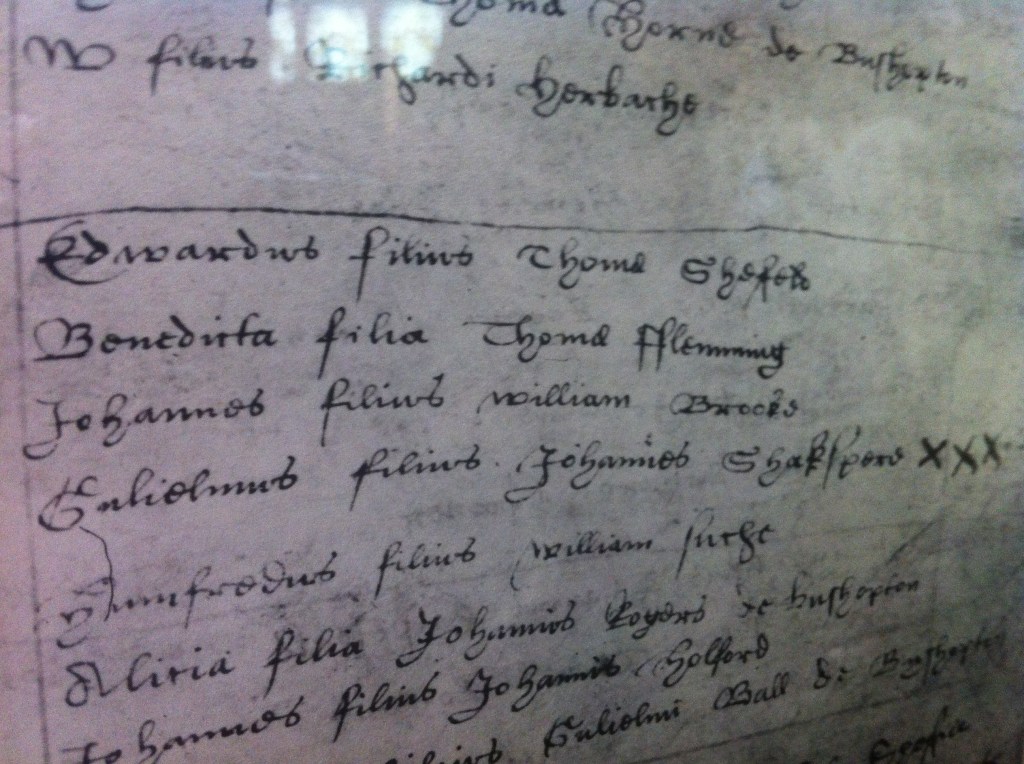 Thoma Horne de Bushopton
W filius Richardi Herbache
Edwardus filius Thoma Shefeld
Benedicta filia Thoma fflemming
Johannes filius william Brooke
Gulielmus filius Johannes Shakspere XXX
Humfredus filius william
Alicia filia Johannis Rogers de bushopton
Johannes filius Johannis Holford
filius Gulielmi Ball de Bushopton